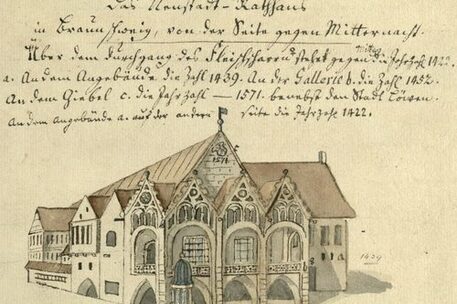 Das Neustadt-Rathhaus
in Braunschweig, von der Seite gegen Mitternacht.
Über dem durchgang des Fleischscharrns stehet gegen die Jahrzahl 1422.
a. An dem Angebäude die Zahl 1439. An der Gallerie b. die Zahl 1452.
An dem Giebel c. die Jahr Zahl — 1571. benebst den Stadt Löwen.
An dem angebäude a. auf der andern seite die Jahrzahl 1422.
1571
1439